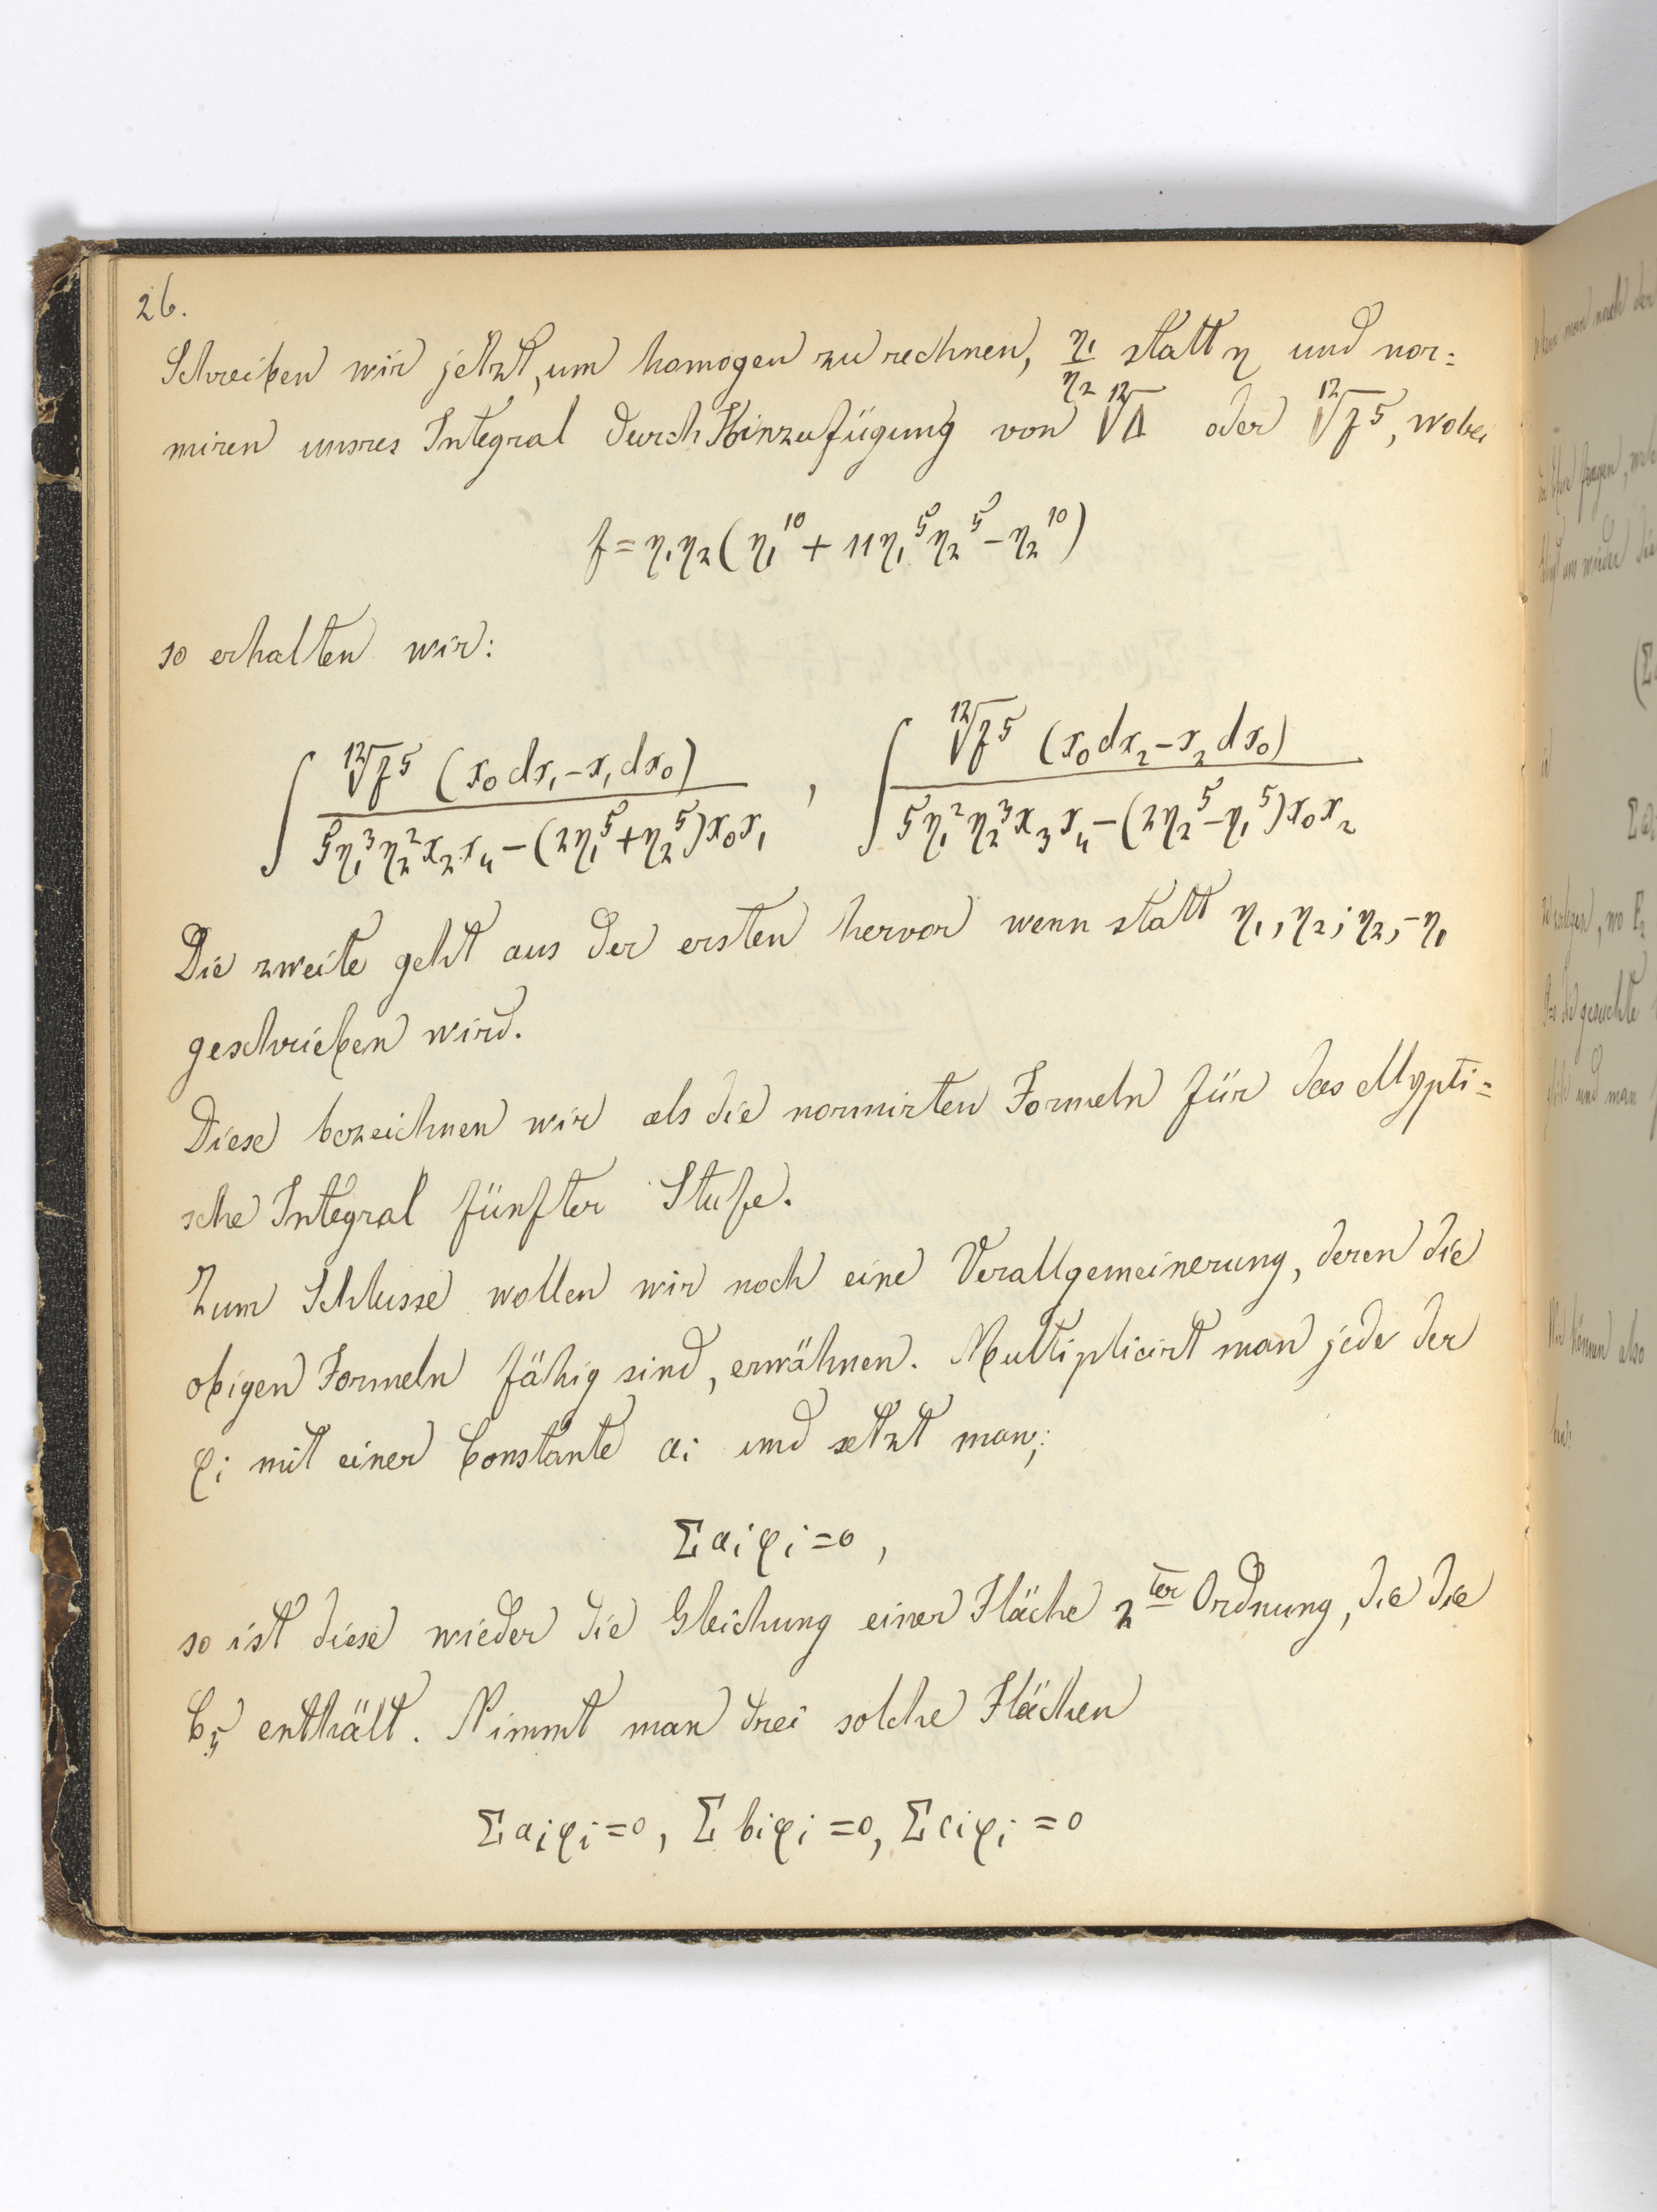 26.
Schreiben wir jetzt, um homogen zu rechnen, η₁/η₂ statt η und nor=
miren unsres Integral durch Hinzufügung von ¹²√Δ oder ¹²√f⁵, wobei
f = η₁η₂(η₁¹⁰ + 11η₁⁵η₂⁵ − η₂¹⁰)
so erhalten wir:
∫ ¹²√f⁵ (x₀dx₁ − x₁dx₀) / 5η₁³η₂²x₂x₄ − (2η₁⁵ + η₂⁵)x₀x₁ , ∫ ¹²√f⁵ (x₀dx₂ − x₂dx₀) / 5η₁²η₂³x₃x₄ − (2η₂⁵ − η₁⁵)x₀x₂
Die zweite geht aus der ersten hervor wenn statt η₁, η₂; η₂, −η₁
geschrieben wird.
Diese bezeichnen wir als die normirten Formeln für das ellypti=
sche Integral fünfter Stufe.
Zum Schlusse wollen wir noch eine Verallgemeinerung, deren die
obigen Formeln fähig sind, erwähnen. Multiplicirt man jede der
φᵢ mit einer Constante aᵢ und setzt man;
Σaᵢφᵢ = 0,
so ist diese wieder die Gleichung einer Fläche 2ter Ordnung, die die
C₅ enthält. Nimmt man drei solche Flächen
Σaᵢφᵢ = 0, Σbᵢφᵢ = 0, Σcᵢφᵢ = 0